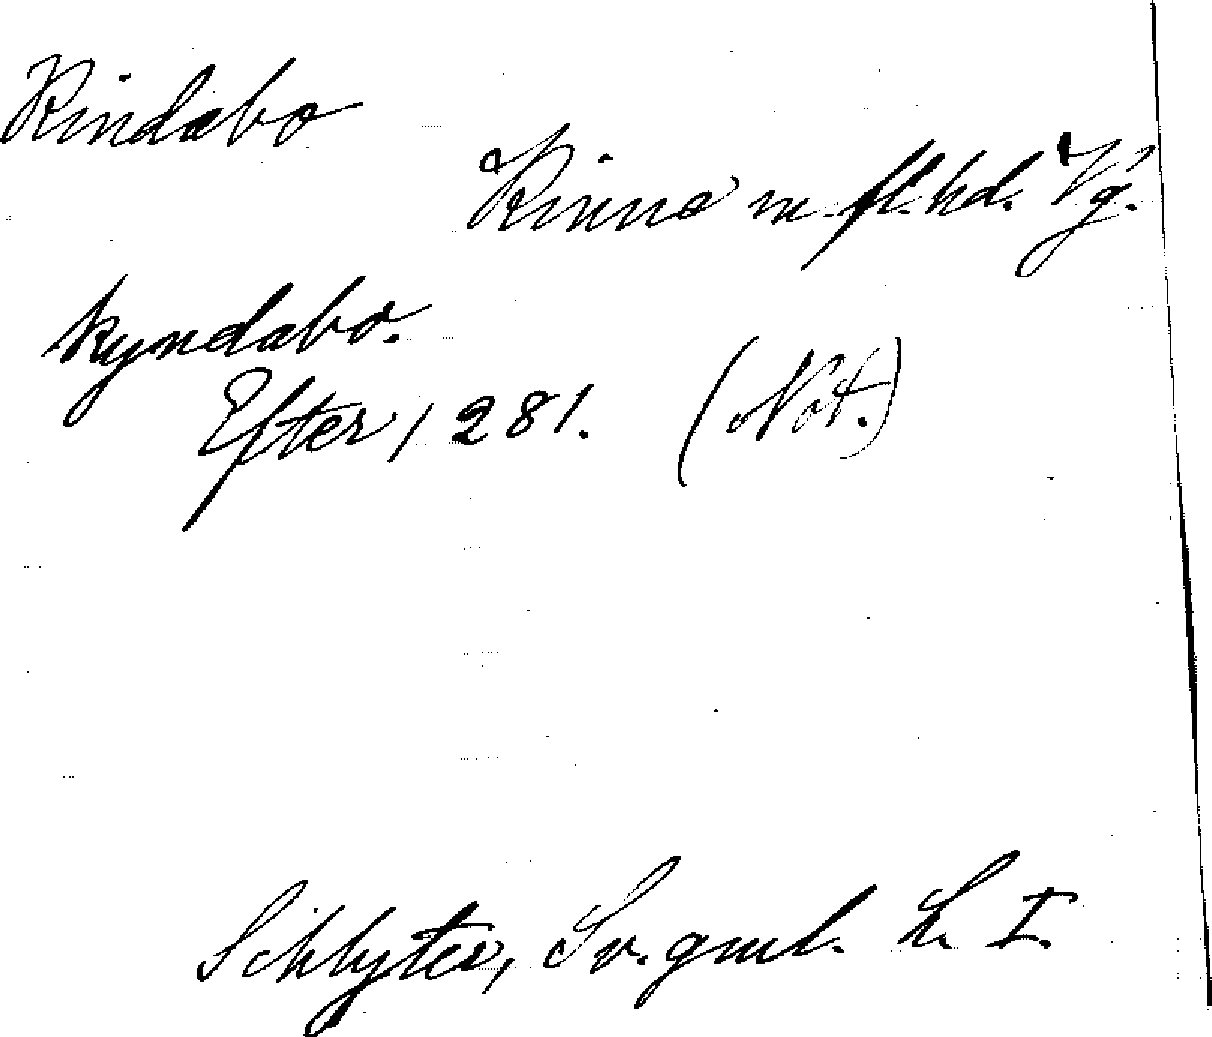 Kindabo
Kinne m. fl. hd. Vg.
kyndabo.
Efter 1281. (Not.)
Schlyter, Sv. gml. L. I.